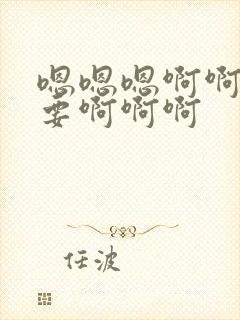 嗯嗯嗯啊啊
要啊啊啊
任波